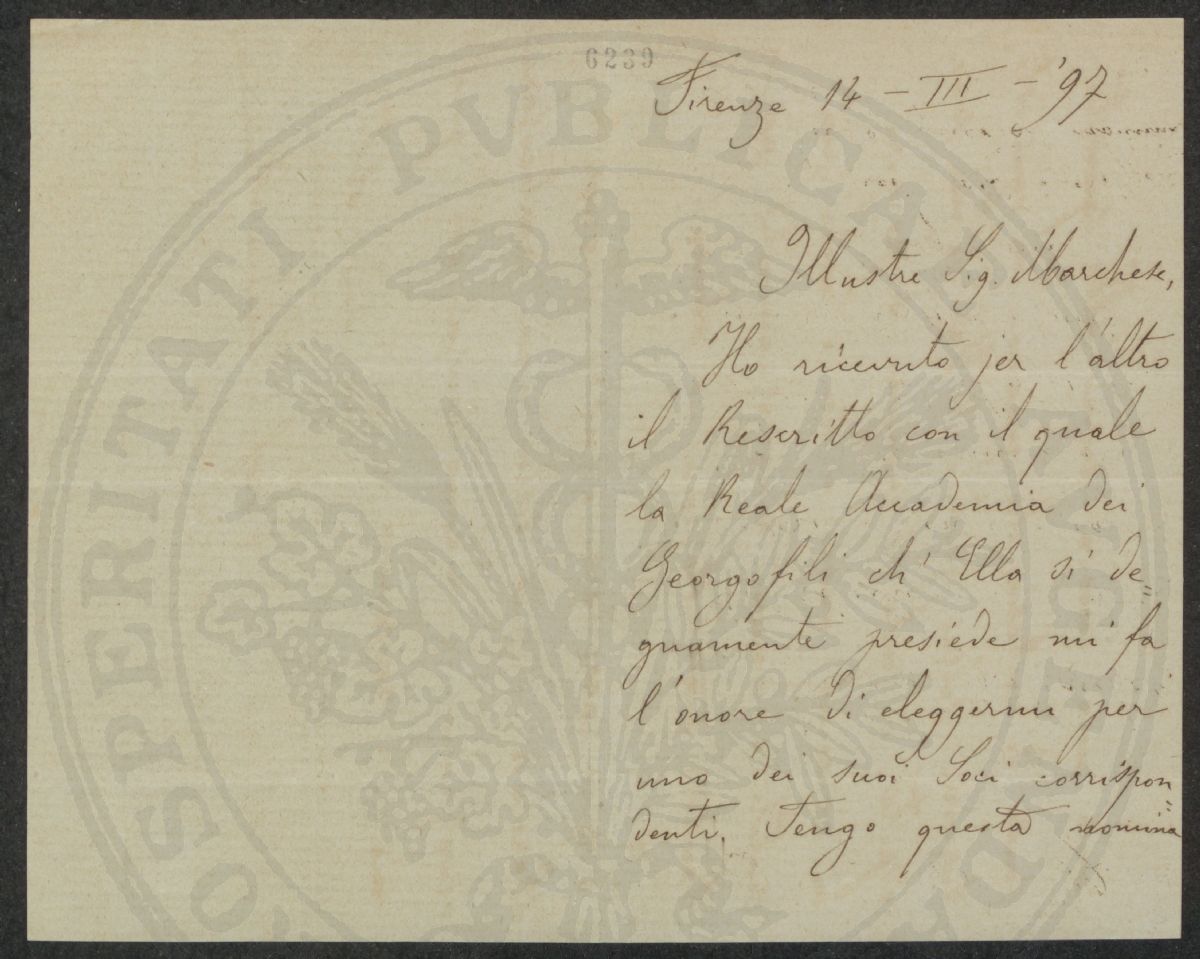 6239
Firenze 14 – III – '97
Illustre Sig. Marchese,
Ho ricevuto jer l'altro
il Rescritto con il quale
la Reale Accademia dei
Georgofili ch' Ella sì de=
gnamente presiede mi fa
l'onore di eleggermi per
uno dei suoi Soci corrispon=
denti. Tengo questa nomina
PROSPERITATI PUBLICAE AUGENDAE